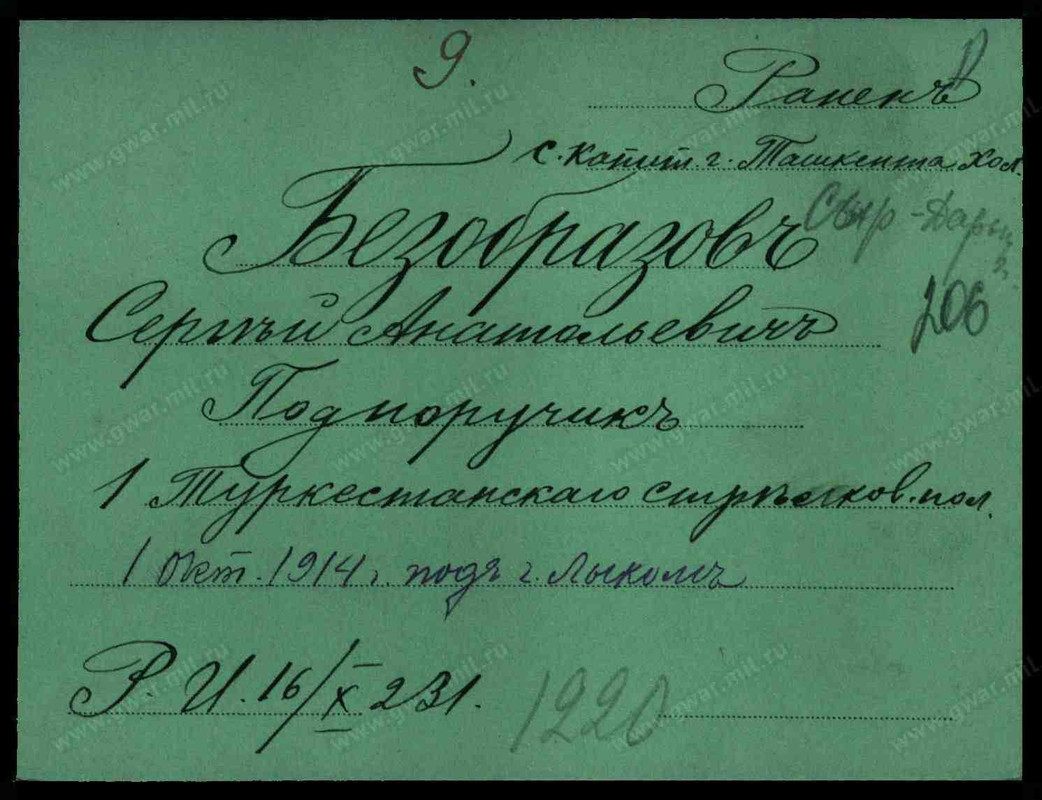 9.
Раненъ
с. капит. г. Ташкента Хол.
Безобразовъ
Сыр-Дарьи
206
Сергѣй Анатольевичъ
Подпоручикъ
1 Туркестанскаго стрѣлков. пол.
1 Окт. 1914 г. подъ г. Лыкомъ
Р. И. 16/X 231.
1220
www.gwar.mil.ru